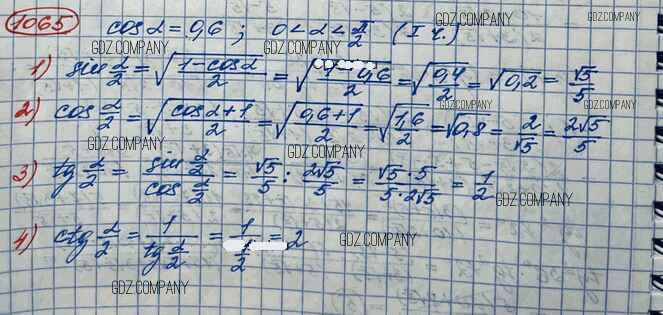 1065 cos α = 0,6 ; 0 < α < π/2 (I ч.)
GDZ.COMPANY GDZ.COMPANY GDZ.COMPANY
1) sin α/2 = √((1-cosα)/2) = √((1-0,6)/2) = √(0,4/2) = √0,2 = √5/5
GDZ.COMPANY GDZ.COMPANY GDZ.COMPANY
2) cos α/2 = √((cosα+1)/2) = √((0,6+1)/2) = √(1,6/2) = √0,8 = 2/√5 = 2√5/5
GDZ.COMPANY GDZ.COMPANY
3) tg α/2 = (sin α/2)/(cos α/2) = √5/5 : 2√5/5 = (√5·5)/(5·2√5) = 1/2
GDZ.COMPANY
4) ctg α/2 = 1/(tg α/2) = 1/(1/2) = 2
GDZ.COMPANY
GDZ.COMPANY